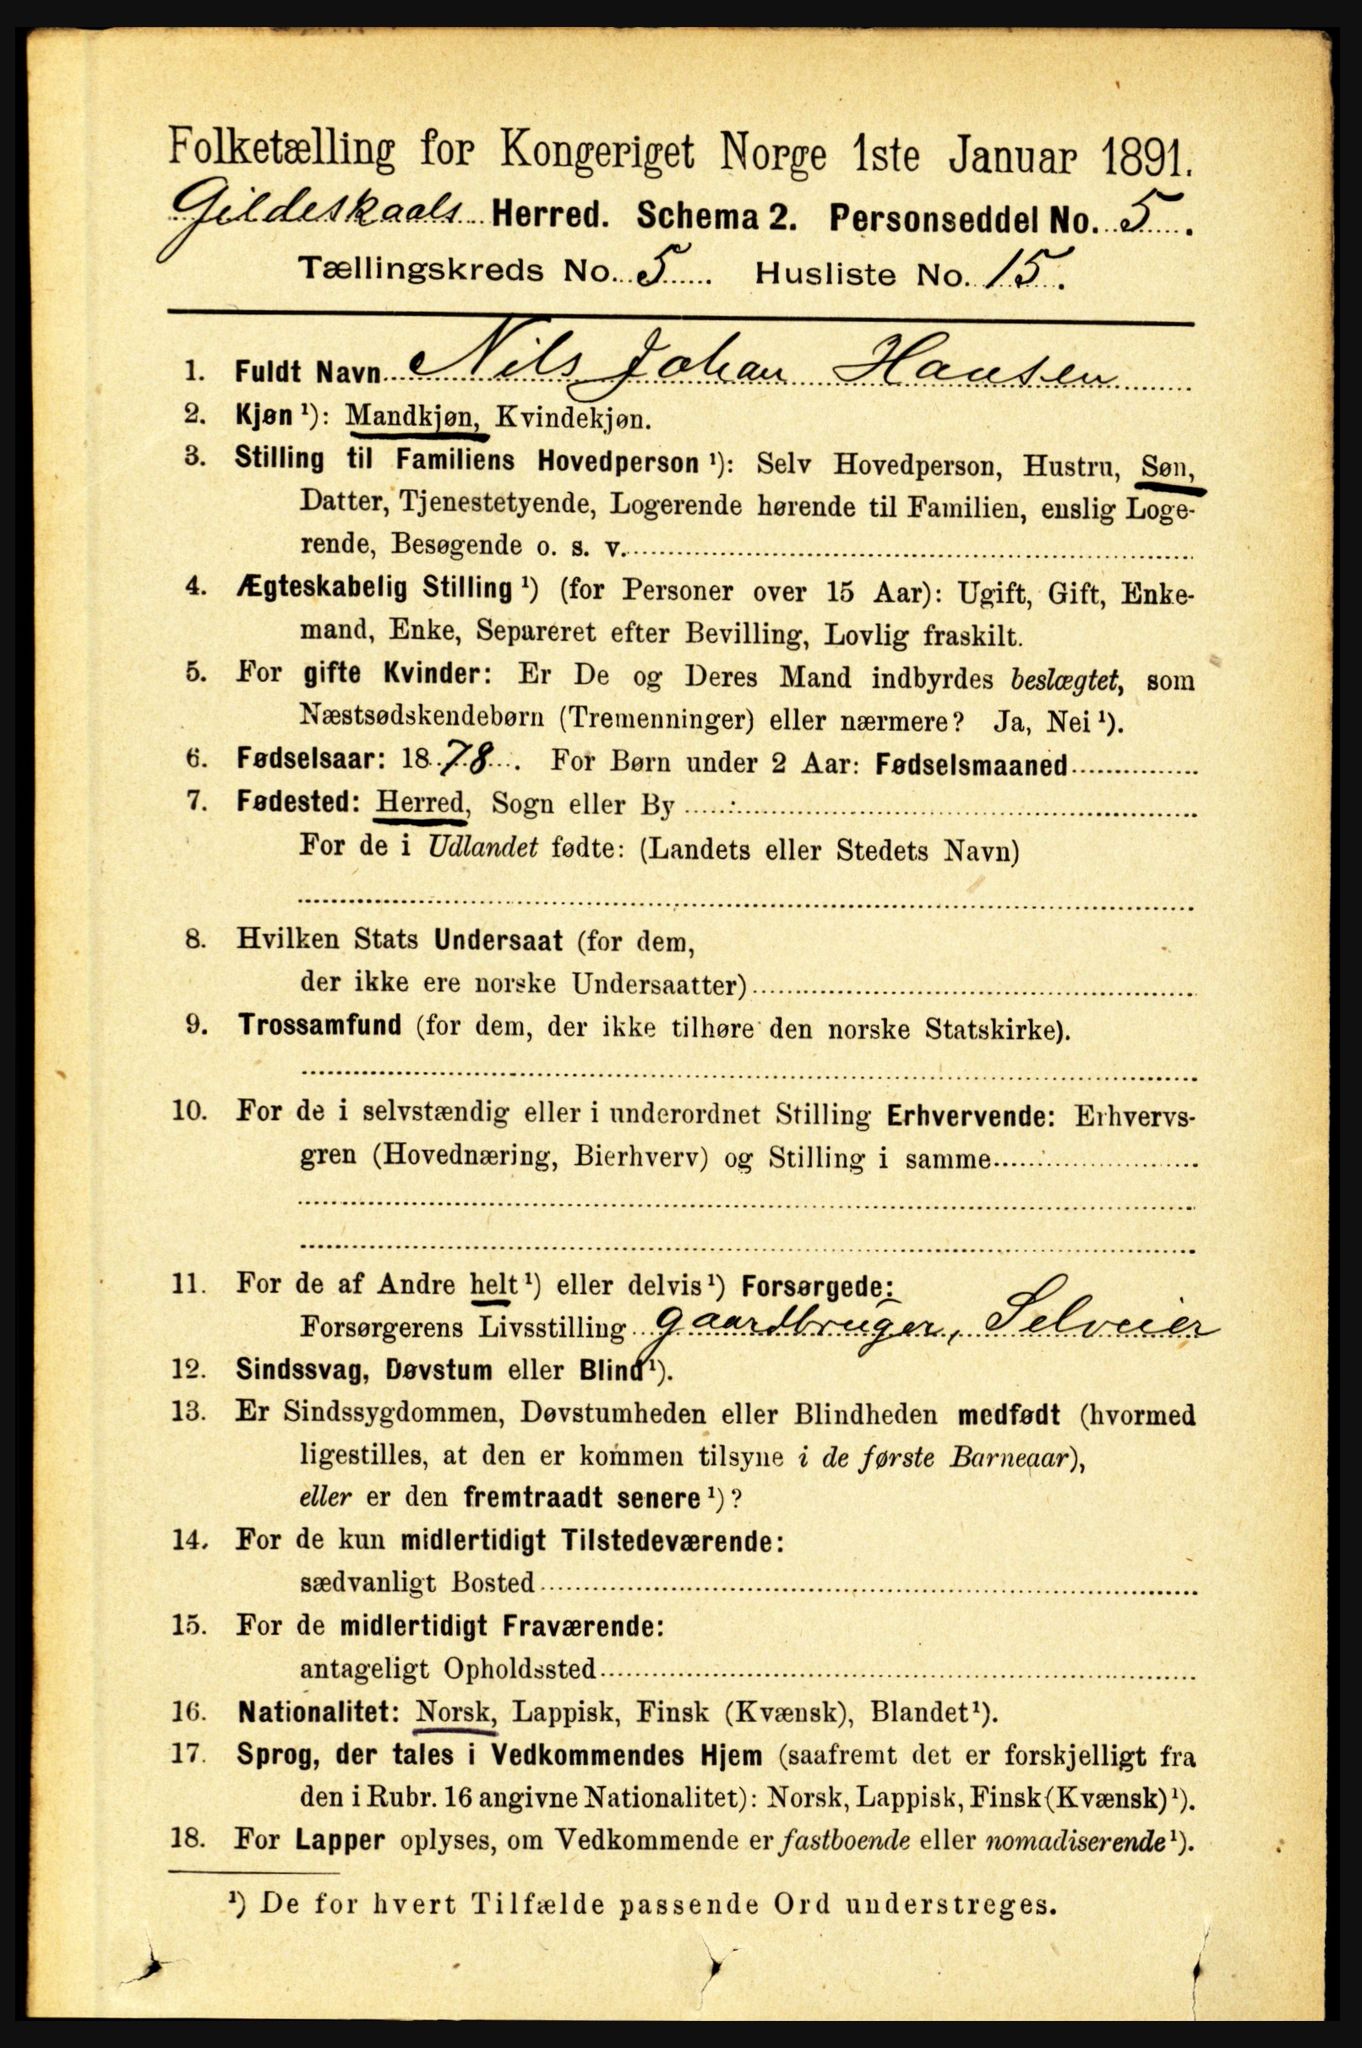 Folketælling for Kongeriget Norge 1ste Januar 1891.
Gildeskaals Herred. Schema 2. Personseddel No. 5.
Tællingskreds No. 5. Husliste No. 15.
1. Fuldt Navn Nils Johan Hansen
2. Kjøn ¹): Mandkjøn, Kvindekjøn.
3. Stilling til Familiens Hovedperson ¹): Selv Hovedperson, Hustru, Søn,
Datter, Tjenestetyende, Logerende hørende til Familien, enslig Loge-
rende, Besøgende o. s. v.
4. Ægteskabelig Stilling ¹) (for Personer over 15 Aar): Ugift, Gift, Enke-
mand, Enke, Separeret efter Bevilling, Lovlig fraskilt.
5. For gifte Kvinder: Er De og Deres Mand indbyrdes beslægtet, som
Næstsødskendebørn (Tremenninger) eller nærmere? Ja, Nei ¹).
6. Fødselsaar: 1878. For Børn under 2 Aar: Fødselsmaaned
7. Fødested: Herred, Sogn eller By
For de i Udlandet fødte: (Landets eller Stedets Navn)
8. Hvilken Stats Undersaat (for dem,
der ikke ere norske Undersaatter)
9. Trossamfund (for dem, der ikke tilhøre den norske Statskirke).
10. For de i selvstændig eller i underordnet Stilling Erhvervende: Erhvervs-
gren (Hovednæring, Bierhverv) og Stilling i samme
11. For de af Andre helt ¹) eller delvis ¹) Forsørgede:
Forsørgerens Livsstilling gaardbruger, Selveier
12. Sindssvag, Døvstum eller Blind ¹).
13. Er Sindssygdommen, Døvstumheden eller Blindheden medfødt (hvormed
ligestilles, at den er kommen tilsyne i de første Barneaar),
eller er den fremtraadt senere ¹)?
14. For de kun midlertidigt Tilstedeværende:
sædvanligt Bosted
15. For de midlertidigt Fraværende:
antageligt Opholdssted
16. Nationalitet: Norsk, Lappisk, Finsk (Kvænsk), Blandet ¹).
17. Sprog, der tales i Vedkommendes Hjem (saafremt det er forskjelligt fra
den i Rubr. 16 angivne Nationalitet): Norsk, Lappisk, Finsk (Kvænsk) ¹).
18. For Lapper oplyses, om Vedkommende er fastboende eller nomadiserende ¹).
¹) De for hvert Tilfælde passende Ord understreges.